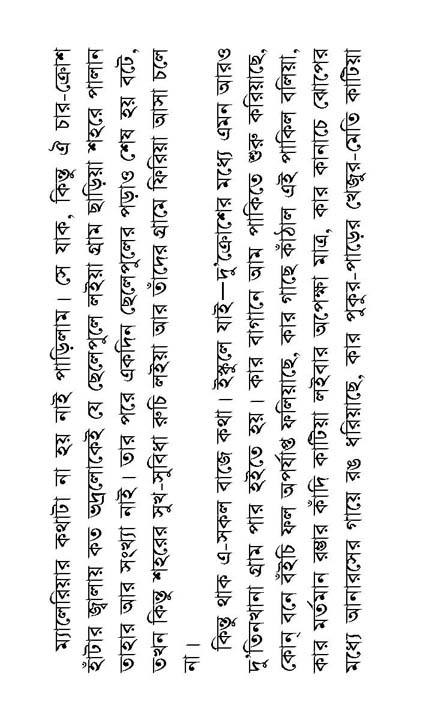 ম্যালেরিয়ার কথাটা না হয় নাই পাড়িলাম। সে যাক, কিন্তু ঐ চার-ক্রোশ
হাঁটার জ্বালায় কত ভদ্রলোকেই যে ছেলেপুলে লইয়া গ্রাম ছাড়িয়া শহরে পালান
তাহার আর সংখ্যা নাই। তার পরে একদিন ছেলেপুলের পড়াও শেষ হয় বটে,
তখন কিন্তু শহরের সুখ-সুবিধা রুচি লইয়া আর তাঁদের গ্রামে ফিরিয়া আসা চলে
না।
কিন্তু থাক এ-সকল বাজে কথা। ইস্কুলে যাই—দু'ক্রোশের মধ্যে এমন আরও
দু'তিনখানা গ্রাম পার হইতে হয়। কার বাগানে আম পাকিতে শুরু করিয়াছে,
কোন্ বনে বঁইচি ফল অপর্যাপ্ত ফলিয়াছে, কার গাছে কাঁঠাল এই পাকিল বলিয়া,
কার মর্তমান রম্ভার কাঁদি কাটিয়া লইবার অপেক্ষা মাত্র, কার কানাচে ঝোপের
মধ্যে আনারসের গায়ে রঙ ধরিয়াছে, কার পুকুর-পাড়ের খেজুর-মেতি কাটিয়া